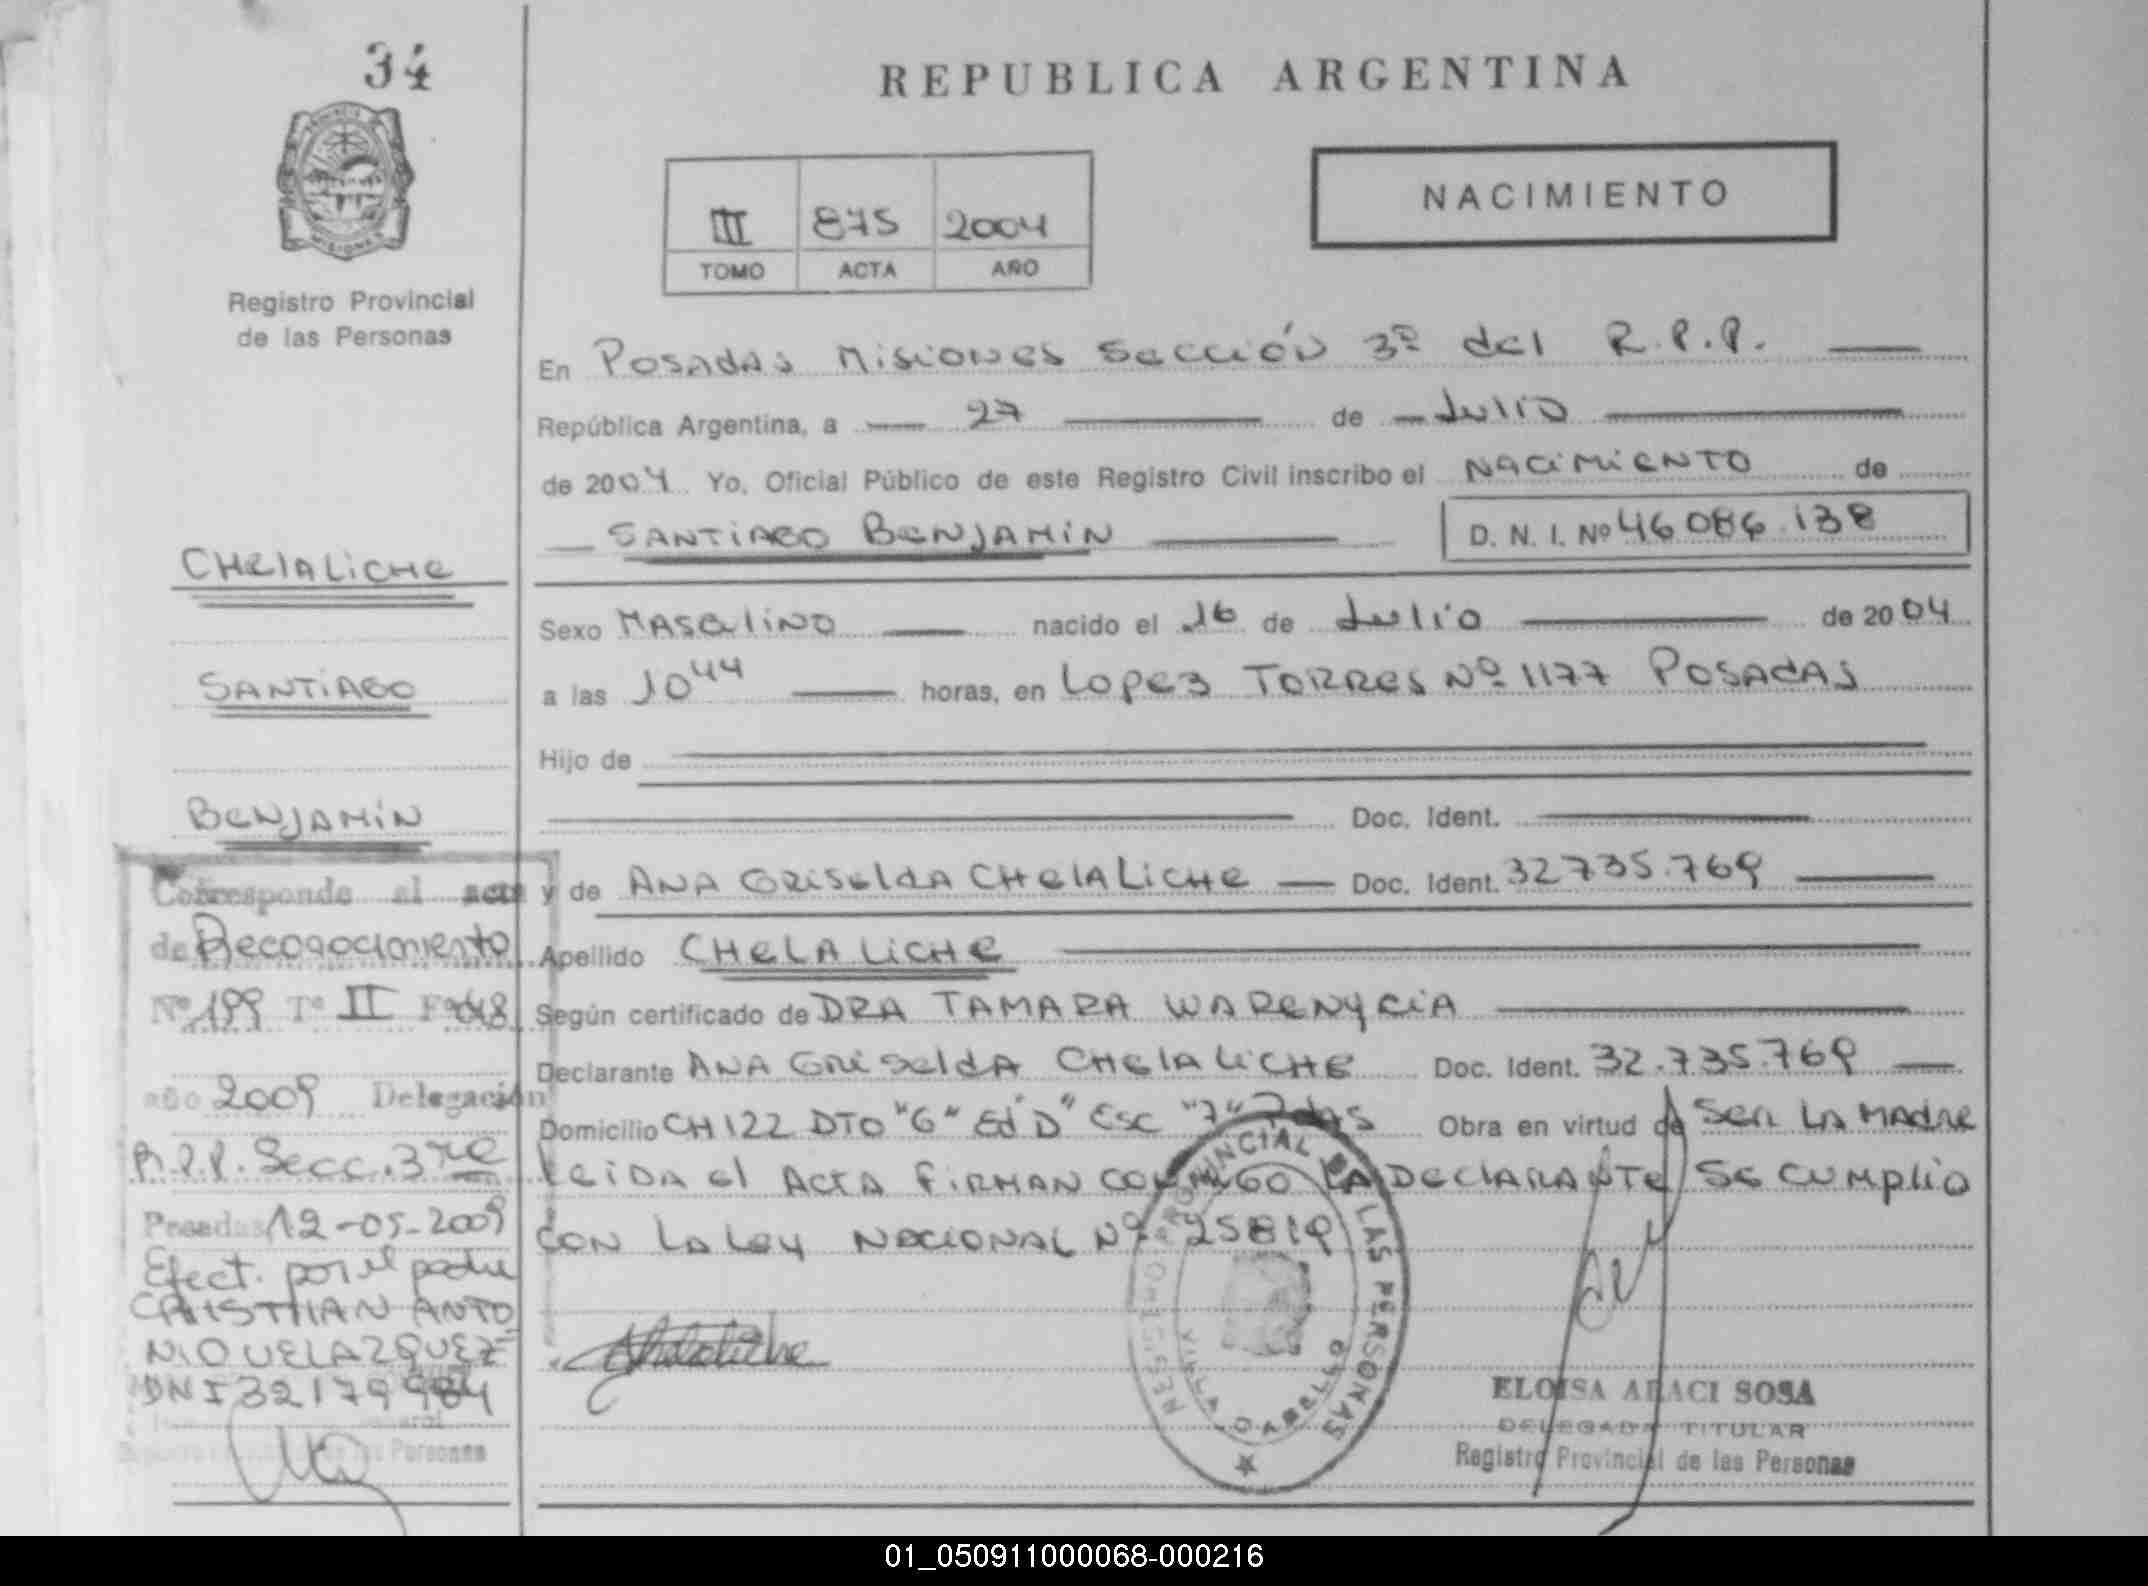 34
REPUBLICA ARGENTINA
PROVINCIA
MISIONES
Registro Provincial
de las Personas
III 875 2004
TOMO ACTA AÑO
NACIMIENTO
En Posadas Misiones Sección 3ª del R.P.P.
República Argentina, a 27 de Julio
de 2004 Yo, Oficial Público de este Registro Civil inscribo el Nacimiento de
SANTIAGO BENJAMÍN D. N. I. Nº 46.086.138
CHELALICHE
SANTIAGO
BENJAMÍN
Sexo Masculino nacido el 16 de Julio de 2004
a las 10 44 horas, en Lopez Torres Nº 1177 Posadas
Hijo de
Doc. Ident.
y de ANA GRISELDA CHELALICHE Doc. Ident. 32735.769
Apellido CHELALICHE
Según certificado de DRA TAMARA WARENYCIA
Declarante ANA GRISELDA CHELALICHE Doc. Ident. 32.735.769
Domicilio CH 122 DTO "G" Ed "D" Esc "7" Pdas Obra en virtud de Ser la Madre
Leida el Acta firman conmigo la declarante se cumplio
con la Ley Nacional Nº 25819
Corresponde al acta
de Reconocimiento
Nº 199 Tº II Fº 048
año 2009 Delegación
R.P.P. Secc. 3ra
Posadas 12-05-2009
Efect. por el padre
CRISTHIAN ANTO
NIO VELAZQUEZ
DNI 32179984
de las Personas
Chelaliche
REGISTRO PROVINCIAL DE LAS PERSONAS
VILLA CABELLO
ELOISA ARACI SOSA
DELEGADA TITULAR
Registro Provincial de las Personas
01_050911000068-000216